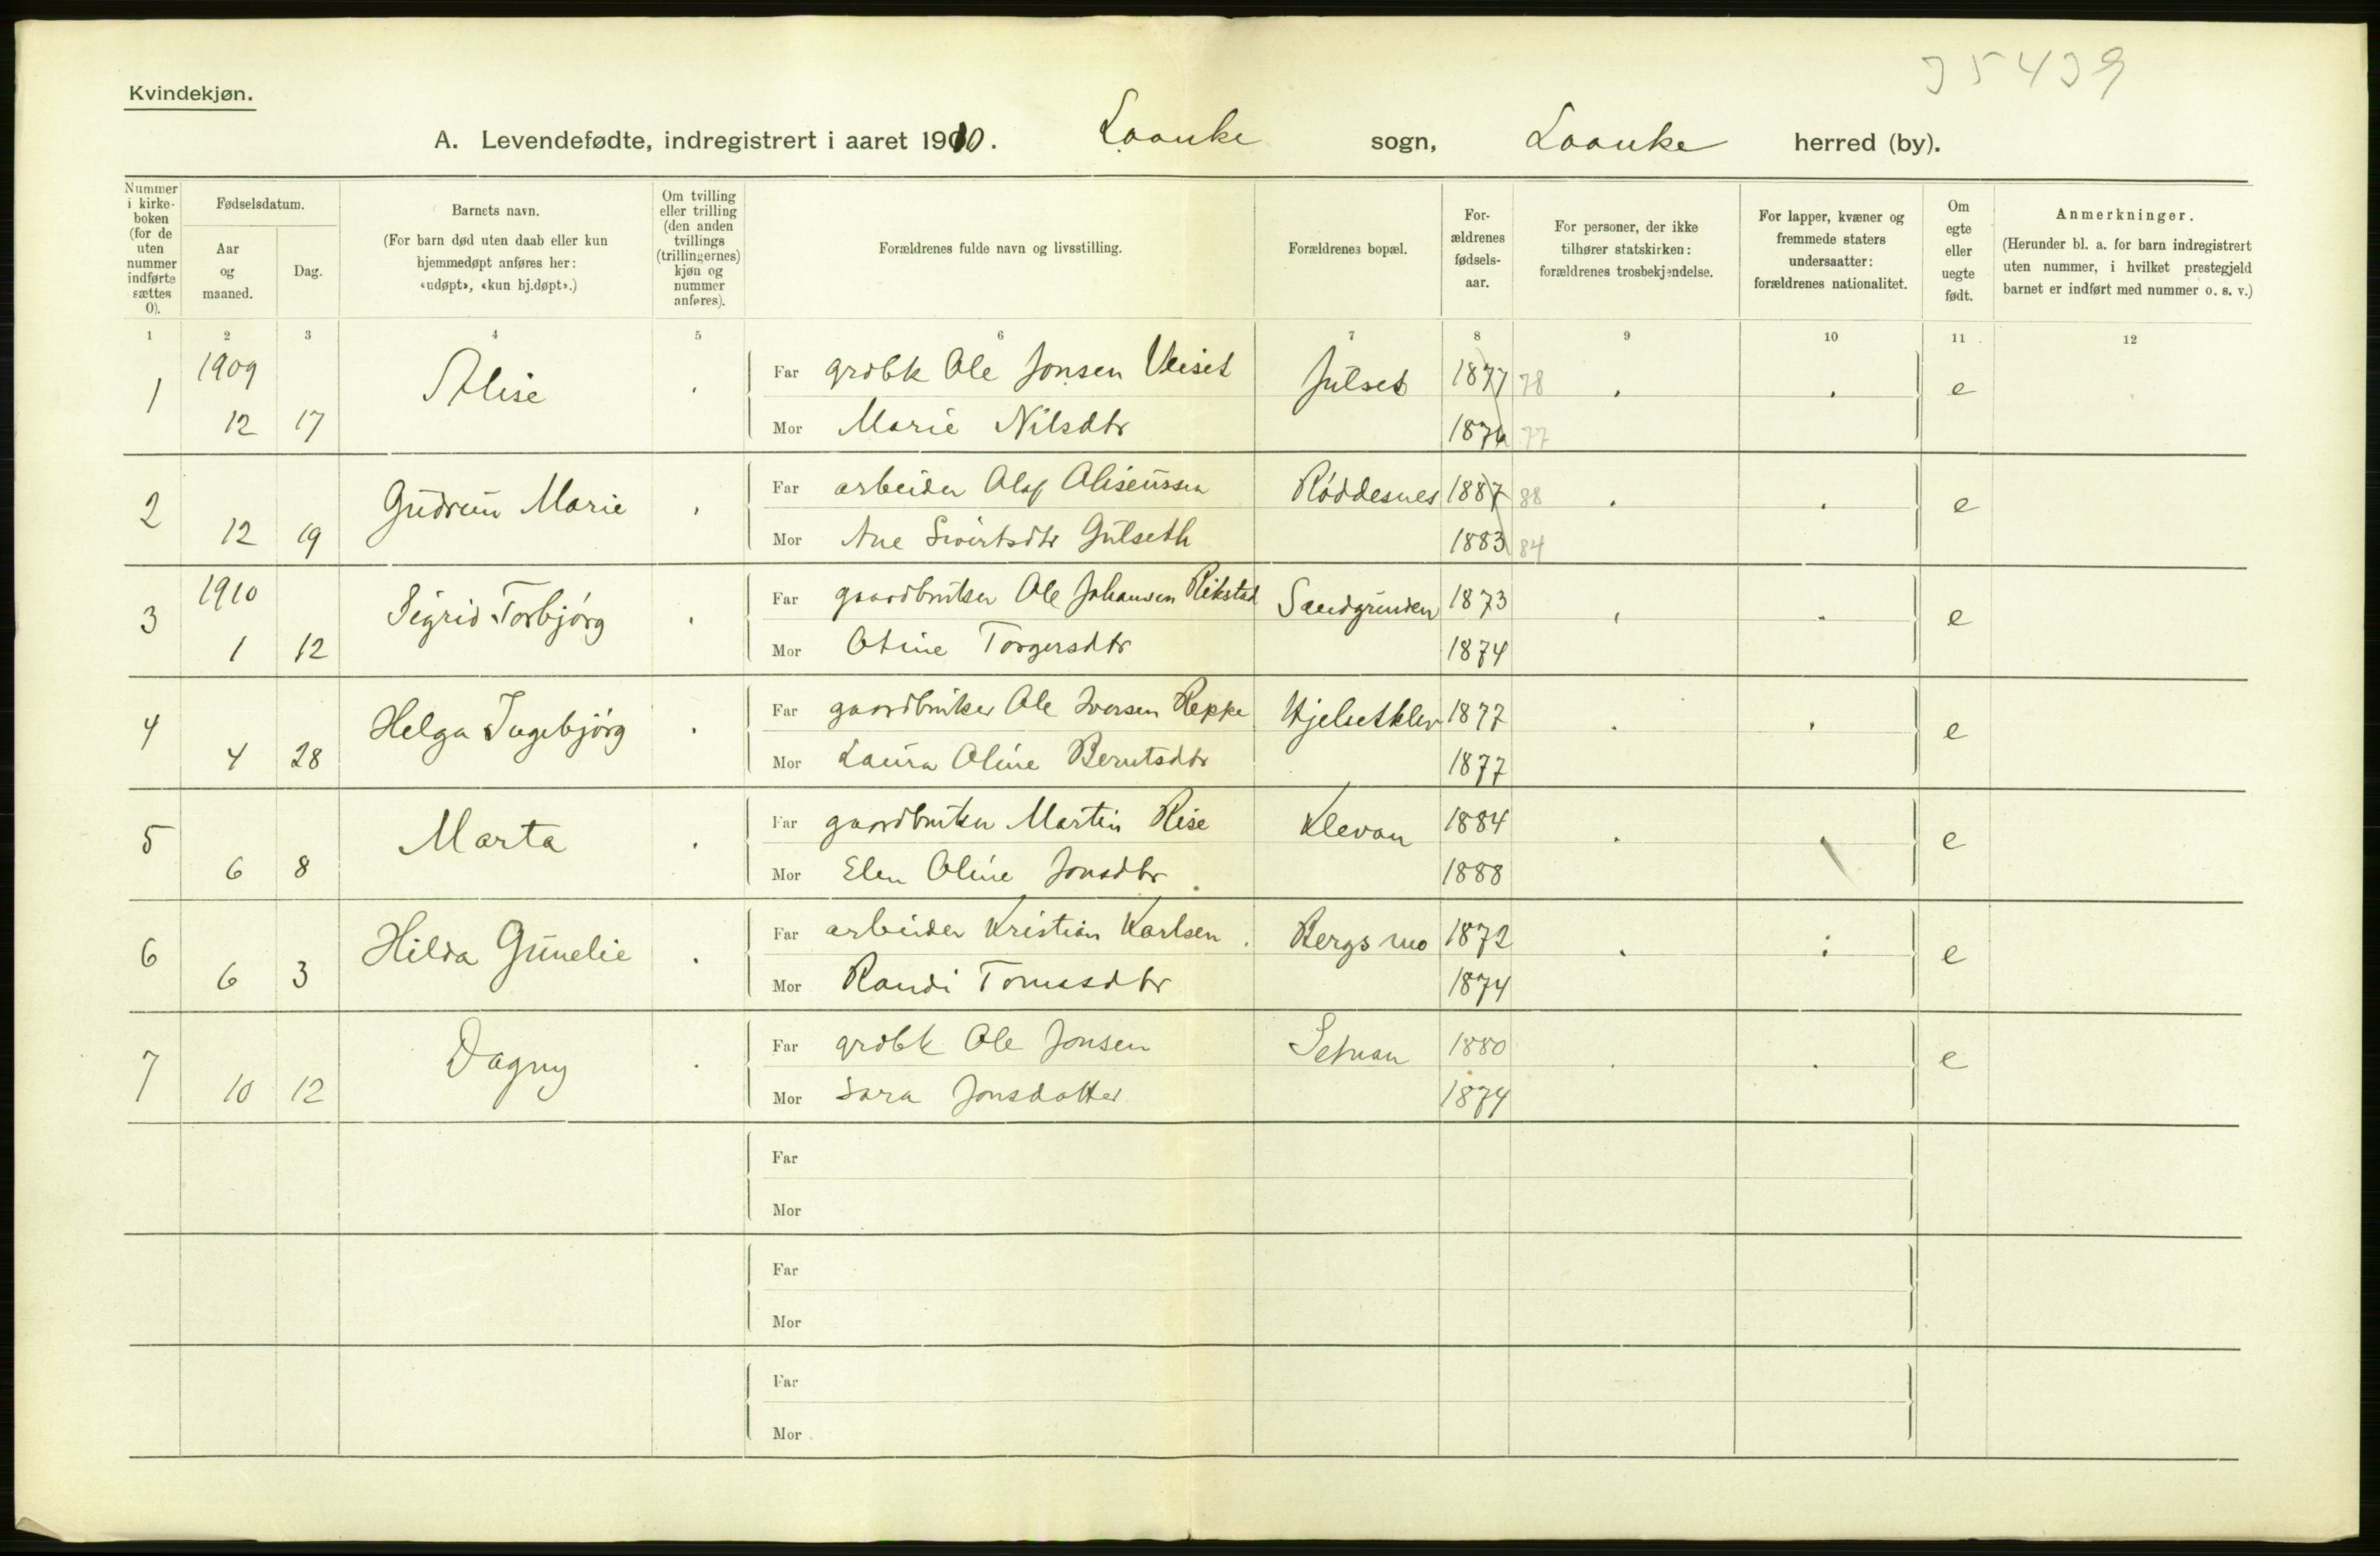 35439
Kvindekjøn.
A. Levendefødte, indregistrert i aaret 1910. Laanke sogn, Laanke herred (by).
Nummer i kirke-boken (for de uten nummer indførte sættes 0).
Fødselsdatum.
Aar og maaned.
Dag.
Barnets navn.
(For barn død uten daab eller kun hjemmedøpt anføres her: «udøpt», «kun hj.døpt».)
Om tvilling eller trilling (den anden tvillings (trillingernes) kjøn og nummer anføres).
Forældrenes fulde navn og livsstilling.
Forældrenes bopæl.
For-ældrenes fødsels-aar.
For personer, der ikke tilhører statskirken: forældrenes trosbekjendelse.
For lapper, kvæner og fremmede staters undersaatter: forældrenes nationalitet.
Om egte eller uegte født.
Anmerkninger.
(Herunder bl. a. for barn indregistrert uten nummer, i hvilket prestegjeld barnet er indført med nummer o. s. v.)
1 2 3 4 5 6 7 8 9 10 11 12
1 1909 12 17 Alise Far grdbk Ole Jonsen Veiset Julset 1877 78 e
Mor Marie Nilsdtr 1876 77
2 12 19 Gudrun Marie Far arbeider Olaf Aliseussen Røddesnes 1887 88 e
Mor Ane Sivertsdtr Gulseth 1883 84
3 1910 1 12 Sigrid Torbjørg Far gaardbruker Ole Johansen Rikstad Sandgrunden 1873 e
Mor Oline Torgersdtr 1874
4 4 28 Helga Ingebjørg Far gaardbruker Ole Iversen Reppe Hjelsetklev 1877 e
Mor Laura Oline Berntsdtr 1877
5 6 8 Marta Far gaardbruker Martin Rise Klevan 1884 e
Mor Elen Oline Jonsdtr 1888
6 6 3 Hilda Gunelie Far arbeider Kristian Karlsen Bergsmo 1872 e
Mor Randi Tomasdtr 1874
7 10 12 Dagny Far grdbk Ole Jonsen Setnan 1880 e
Mor Sara Jonsdatter 1874
Far
Mor
Far
Mor
Far
Mor